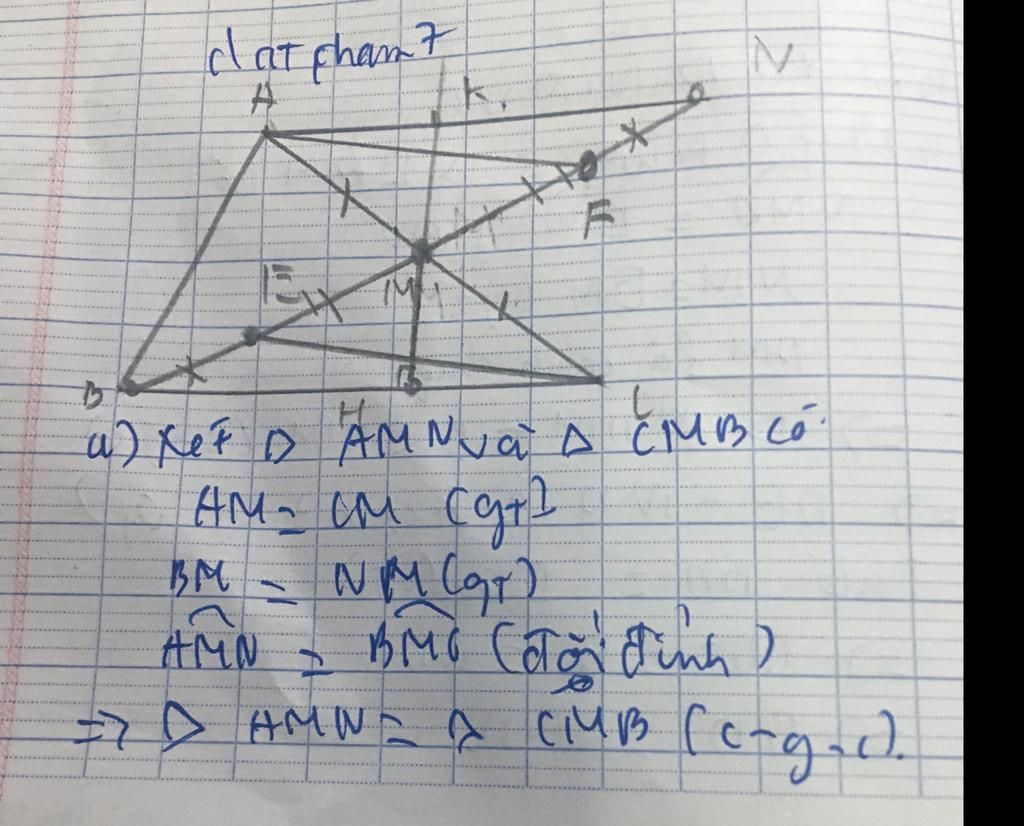 datpham7
A K N
F
E M
B H C
a) Xét Δ AMN và Δ CMB có
AM = CM (gt)
BM = NM (gt)
AMN = BMC (đối đỉnh)
=> Δ AMN = Δ CMB (c-g-c).